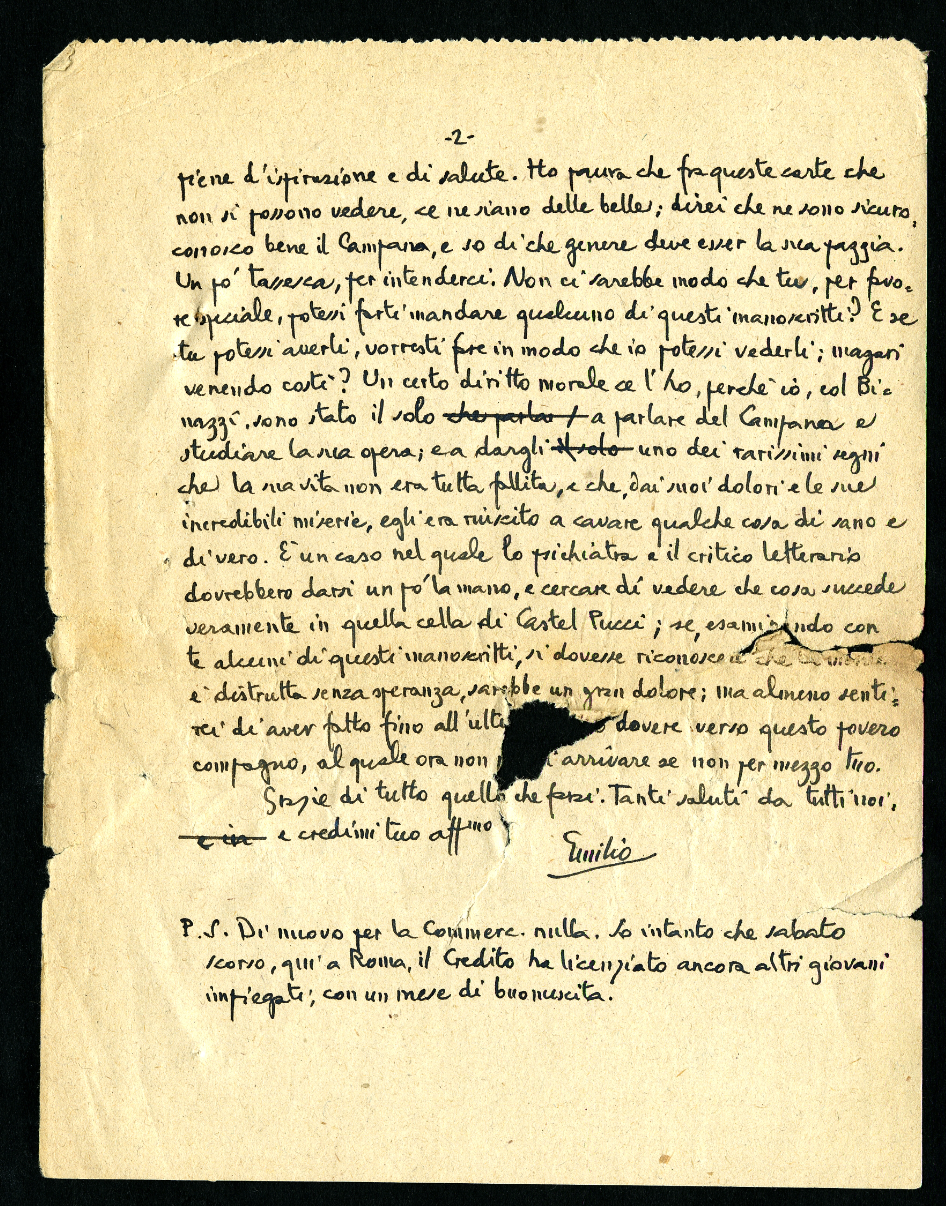 -2-
piene d'ispirazione e di salute. Ho paura che fra queste carte che
non si possono vedere, ce ne siano delle belle; direi che ne sono sicuro,
conosco bene il Campana, e so di che genere deve esser la sua pazzia.
Un po' tassesca, per intenderci. Non ci sarebbe modo che tu, per favo=
re speciale, potessi farti mandare qualcuno di questi manoscritti? E se
tu potessi averli, vorresti fare in modo che io potessi vederli; magari
venendo costì? Un certo diritto morale ce l'ho, perchè io, col Bi=
nazzi, sono stato il solo che parlas a parlare del Campana e
studiare la sua opera; e a dargli il solo uno dei rarissimi segni
che la sua vita non era tutta fallita, e che, dai suoi dolori e le sue
incredibili miserie, egli era riuscito a cavare qualche cosa di sano e
di vero. È un caso nel quale lo psichiatra e il critico letterario
dovrebbero darsi un po' la mano, e cercare di vedere che cosa succede
veramente in quella cella di Castel Pucci; se, esaminando con
te alcuni di questi manoscritti, si dovesse riconoscere che
è distrutta senza speranza, sarebbe un gran dolore; ma almeno senti=
rei di aver fatto fino all'ulti dovere verso questo povero
compagno, al quale ora non arrivare se non per mezzo tuo.
Grazie di tutto quello che farai. Tanti saluti da tutti noi,
e credimi tuo affmo
Emilio
P.S. Di nuovo per la Commerc. nulla. So intanto che sabato
scorso, qui a Roma, il Credito ha licenziato ancora altri giovani
impiegati; con un mese di buonuscita.